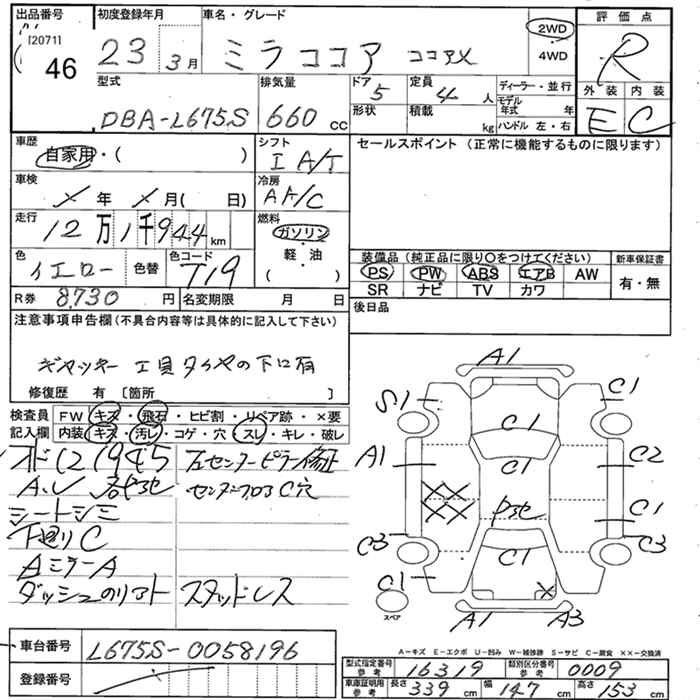 出品番号 初度登録年月 車名・グレード 評価点
[2071] 46 23 3月 ミラココア ココアX 2WD 4WD R
型式 排気量 ドア 5 定員 4人 ディーラー・並行 外装 内装
DBA-L675S 660 CC 形状 積載 kg モデル年式 年 ハンドル 左・右 E C
車歴 自家用・( ) シフト I A/T セールスポイント (正常に機能するものに限ります)
車検 年 月( 日) 冷房 AA/C
走行 12万1千944km 燃料 ガソリン・軽・油 ( )
色 イエロー 色替 色コード T19
装備品 (純正品に限り○をつけてください) 新車保証書
PS PW ABS エアB AW 有・無
SR ナビ TV カワ
R券 8,730円 名変期限 月 日 後日品
注意事項申告欄 (不具合内容等は具体的に記入して下さい)
ギャッキー 工具タイヤの下に有
修復歴 有 [箇所 ]
検査員 FW キズ・飛石・ヒビ割・リペア跡・×要
記入欄 内装 キズ・汚レ・コゲ・穴・スレ・キレ・破レ
左センターピラー修正
センターフロアC穴
シートシミ
下廻りC
AミラーA
スタッドレス
A1
S1 C1
C1
A1 C1 C2
XX
XX C1
C3 C1 C3
C1 X
スペア A1 A3
A-キズ E-エクボ U-凹み W-補修跡 S-サビ C-腐食 ××-交換済
車台番号 L675S-0058196
登録番号
型式指定番号 参考 16319 類別区分番号 参考 0009
車庫証明用 参考 長さ 339cm 幅 147cm 高さ 153cm